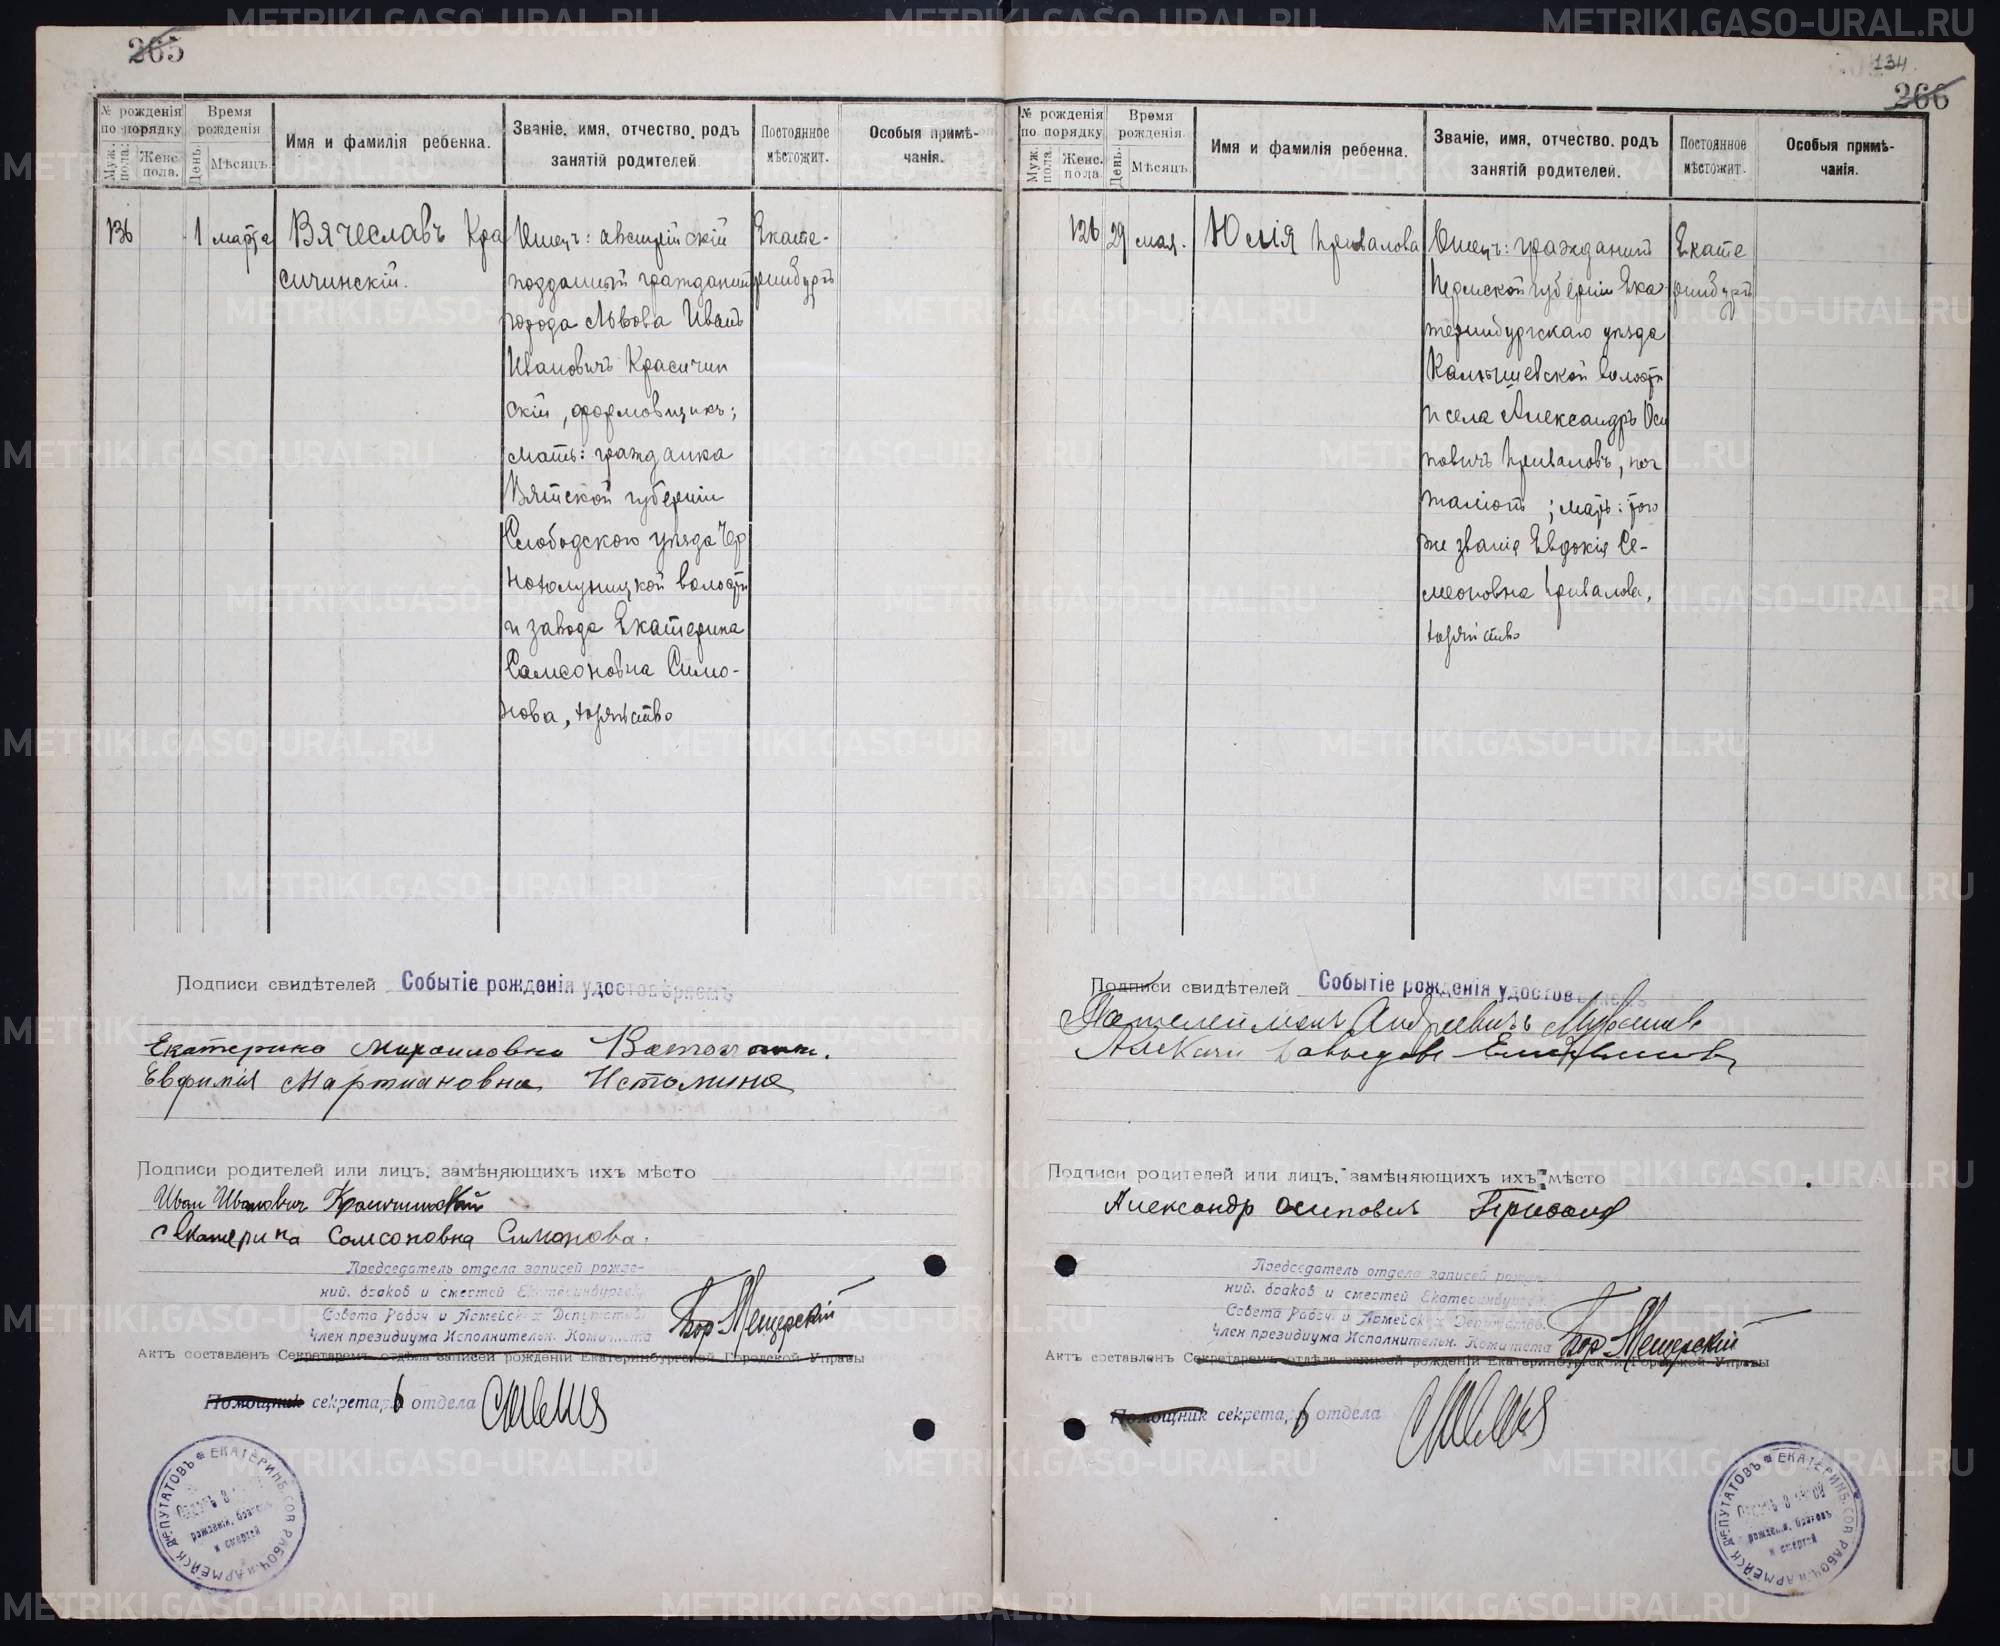 265
№ рожденія по порядку
Муж. пола.
Женс. пола.
Время рожденія
День.
Мѣсяцъ.
Имя и фамилія ребенка.
Званіе, имя, отчество, родъ занятій родителей.
Постоянное мѣстожит.
Особыя примѣчанія.
136
1
марта
Вячеславъ Кра
сичинскій.
Отецъ: австрійскій
подданный гражданинъ
города Львова Иванъ
Ивановичъ Красичин
скій, формовщикъ;
мать: гражданка
Вятской губерніи
Слободского уѣзда Чер
нохолуницкой волости
и завода Екатерина
Самсоновна Симо-
нова, хозяйство
Екате-
ринбургъ
Подписи свидѣтелей Событіе рожденія удостовѣряемъ
Екатерина
Евфимія Мартиановна Истомина
Подписи родителей или лицъ, замѣняющихъ ихъ мѣсто
Иван Иванович Красичинский
Екатерина Самсоновна Симонова.
Председатель отдела записей рожде-
ний, браков и смертей Екатеринбургск.
Совета Рабоч. и Армейских Депутатов.
Член президиума Исполнительн. Комитета
Мещерскій
Актъ составленъ Секретаремъ отдѣла записей рожденій Екатеринбургской Городской Управы
Помощник секретарь отдела
ЕКАТЕРИНБ. СОВ. РАБОЧ. и АРМЕЙСК. ДЕПУТАТОВЪ
рожденій, браковъ
и смертей
134
266
№ рожденія по порядку
Муж. пола.
Женс. пола.
Время рожденія.
День.
Мѣсяцъ.
Имя и фамилія ребенка.
Званіе, имя, отчество, родъ занятій родителей.
Постоянное мѣстожит.
Особыя примѣчанія.
126
29
мая.
Юлія Привалова
Отецъ: гражданинъ
Пермской губерніи Ека
теринбургскаго уѣзда
волости
и села Александръ Оси
повичъ Приваловъ,
мать: того
же званія Евдокія Се-
меоновна Привалова,
хозяйство
Екате
ринбургъ
Подписи свидѣтелей Событіе рожденія удостовѣряемъ
Пантелеймонъ Андреевичъ
Подписи родителей или лицъ, замѣняющихъ ихъ мѣсто
Александр Осипович Привалов
Председатель отдела записей рожде-
ний, браков и смертей Екатеринбургской
Совета Рабоч. и Армейских Депутатов.
Член президиума Исполнительн. Комитета
Мещерскій
Актъ составленъ Секретаремъ отдѣла записей рожденій Екатеринбургской Городской Управы
Помощник секретарь отдела
ЕКАТЕРИНБ. СОВ. РАБОЧ. и АРМЕЙСК. ДЕПУТАТОВЪ
рожденій, браковъ
и смертей
METRIKI.GASO-URAL.RU